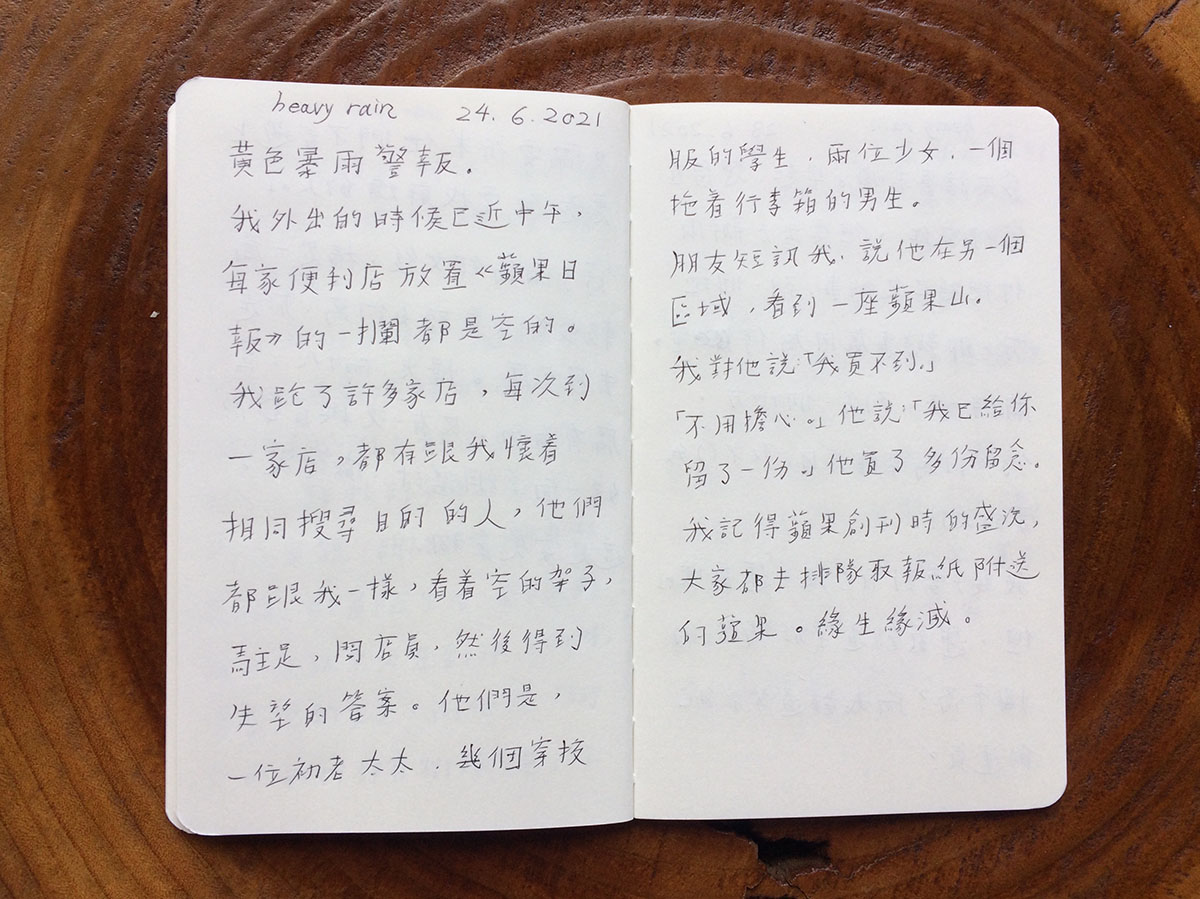 heavy rain 24.6.2021
黃色暴雨警報。
我外出的時候已近中午，
每家便利店放置《蘋果日
報》的一攔都是空的。
我跑了許多家店，每次到
一家店，都有跟我懷着
相同搜尋目的的人，他們
都跟我一樣，看着空的架子，
駐足，問店員，然後得到
失望的答案。他們是，
一位初老太太．幾個穿校
服的學生．兩位少女．一個
拖着行李箱的男生。
朋友短訊我，說他在另一個
區域，看到一座蘋果山。
我對他說：「我買不到。」
「不用擔心。」他說：「我已給你
留了一份。」他買了多份留念。
我記得蘋果創刊時的盛況，
大家都去排隊取報紙附送
的蘋果。緣生緣滅。